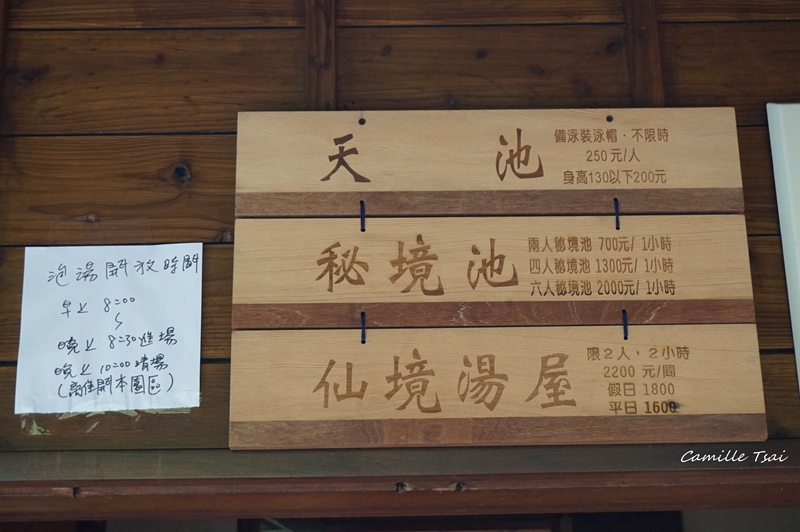 天池
備泳裝泳帽·不限時
250元/人
身高130以下200元
秘境池
兩人秘境池 700元/1小時
四人秘境池 1300元/1小時
六人秘境池 2000元/1小時
仙境湯屋
限2人,2小時
2200 元/間
假日 1800
平日 1600
泡湯開放時間
早上 8:00
~
晚上 8:30進場
晚上 10:00清場
(離開本園區)
Camille Tsai